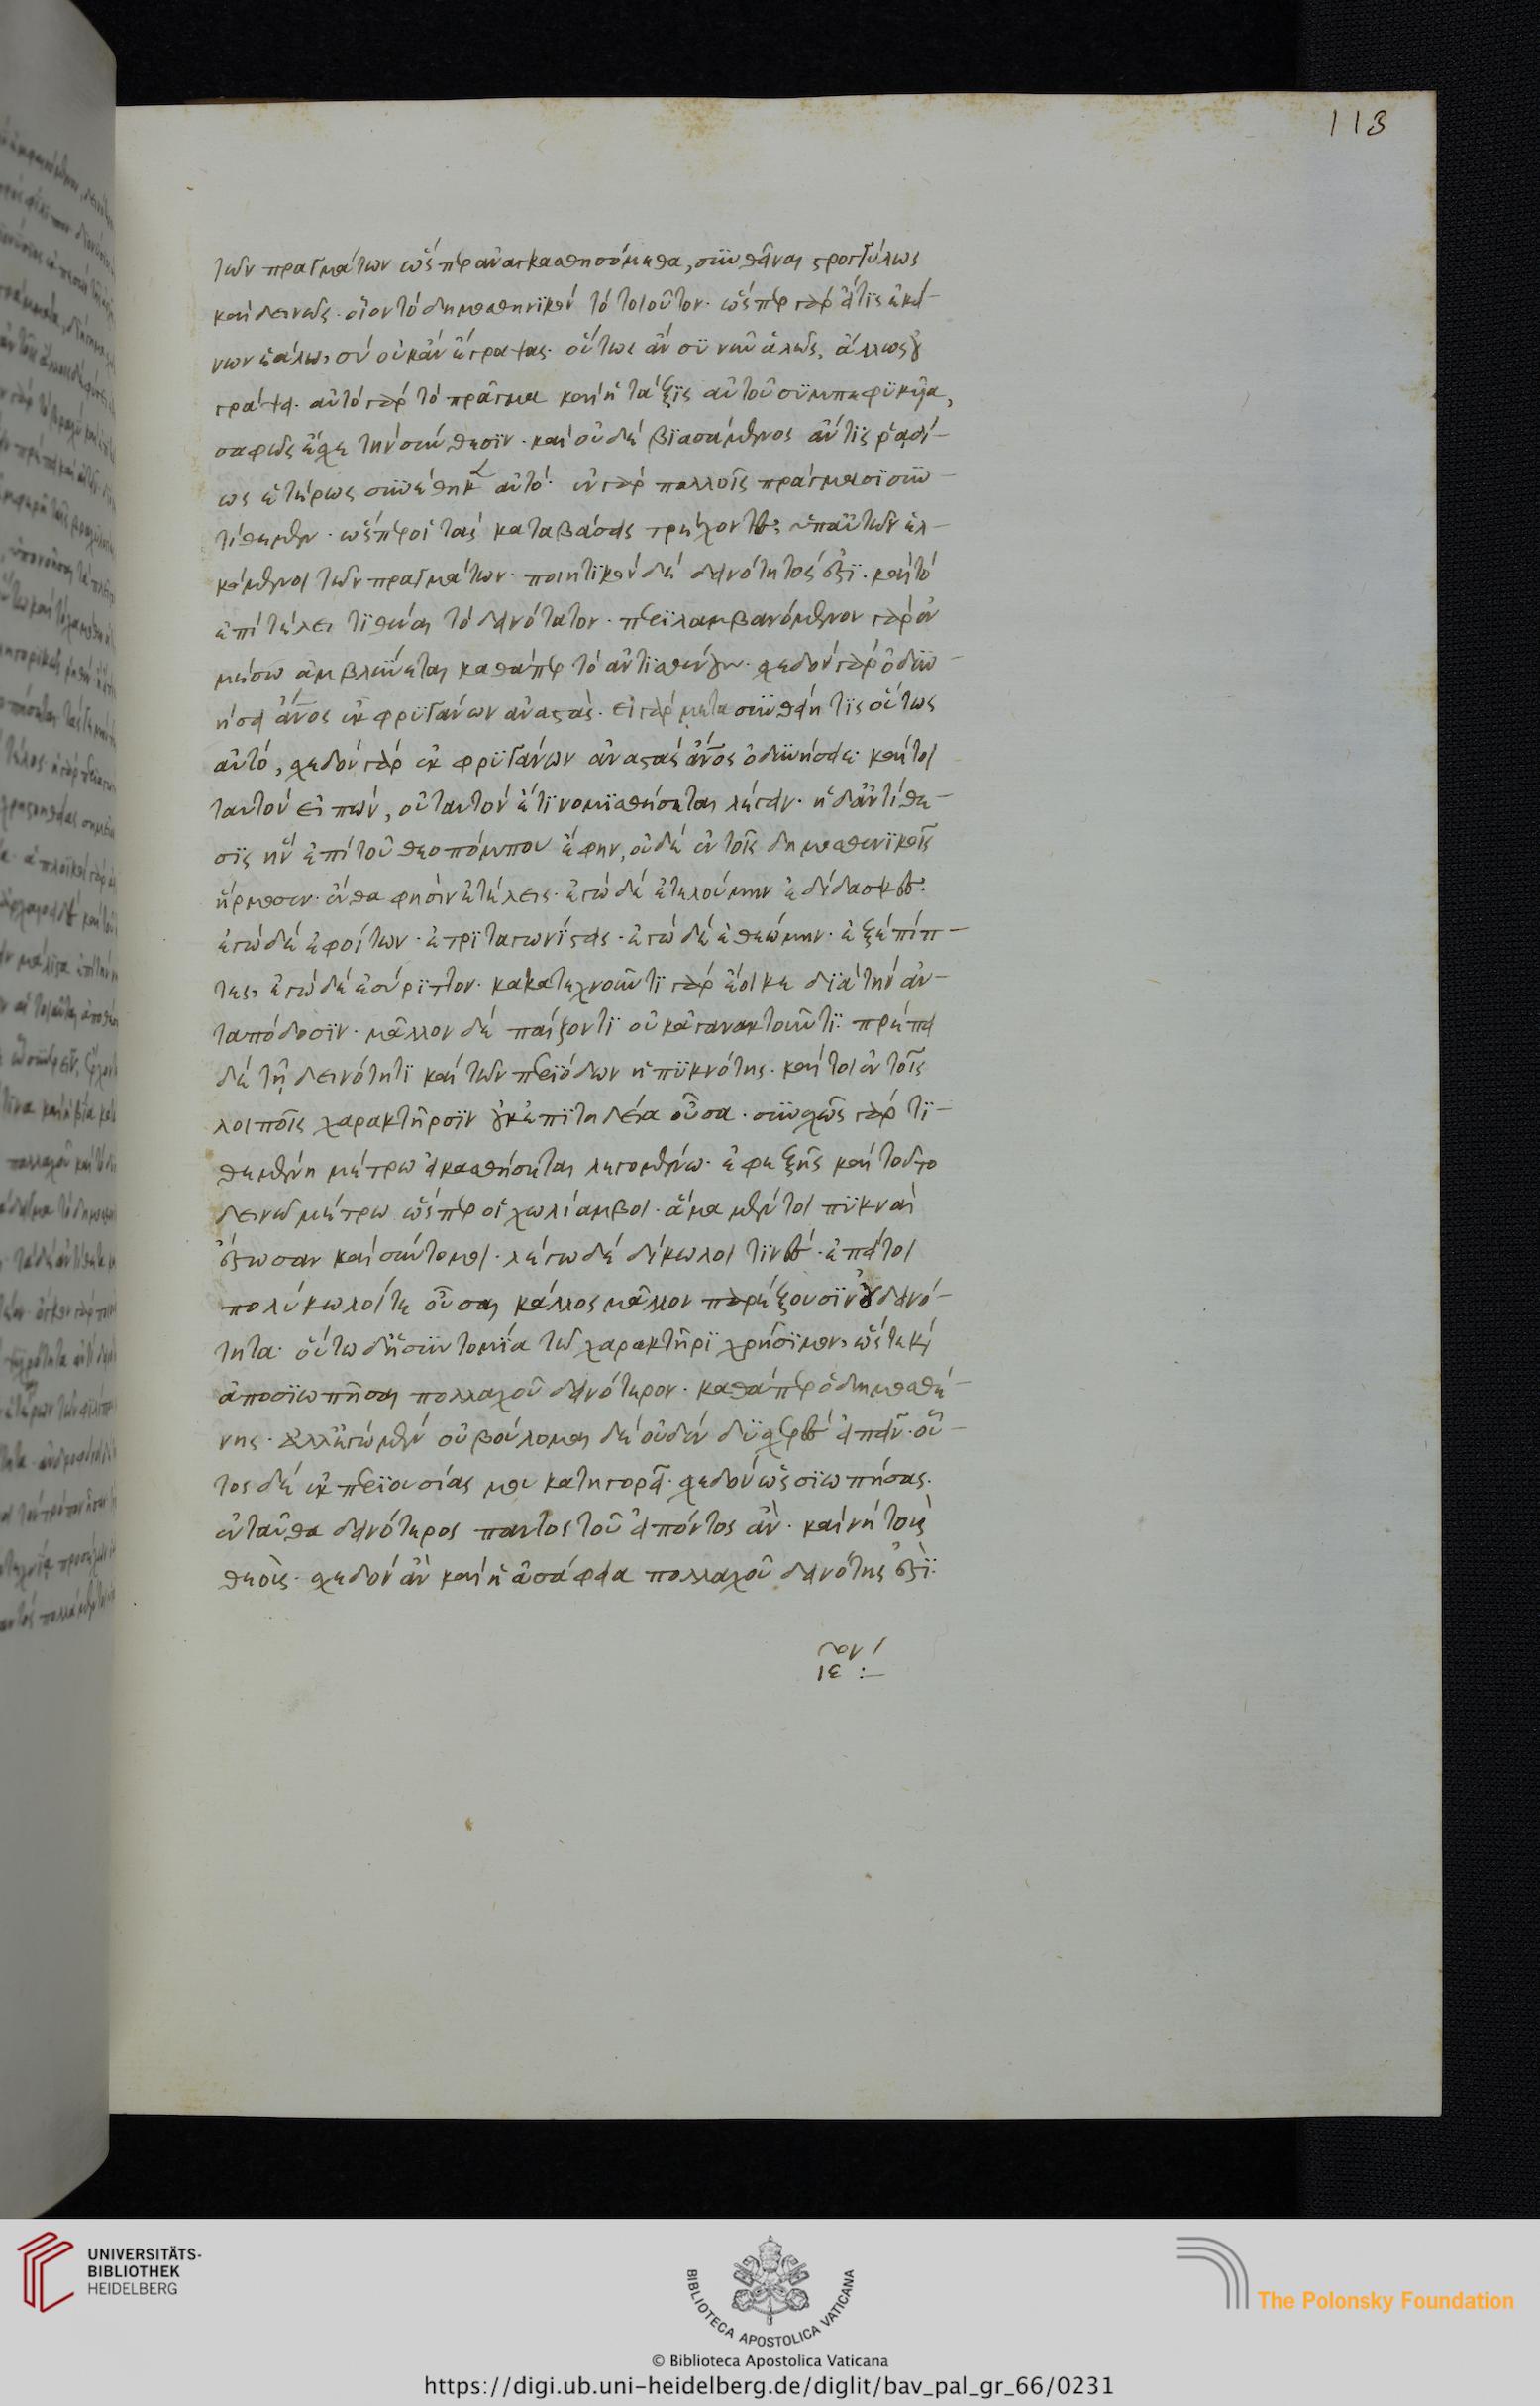 113
τῶν πραγμάτων ὥσπερ ἀναγκασθησόμεθα, συνθεῖναι στρογγύλως
καὶ δεινῶς. οἷον τὸ δημοσθενικὸν τὸ τοιοῦτον. ὥσπερ γὰρ εἴ τις ἐκεί-
νων ἑάλω, σὺ οὐκ ἂν ἔγραψας. οὕτως ἂν σὺ νῦν ἁλῶς, ἄλλως οὐ
γράψει. αὐτὸ γὰρ τὸ πρᾶγμα καὶ ἡ τάξις αὐτοῦ συμπεφυκυῖα,
σαφῶς ἔσχε τὴν σύνθεσιν. καὶ οὐδὲ βιασάμενος ἄν τις ῥαδί-
ως ἑτέρως συνέθηκεν αὐτό. ἐν γὰρ πολλοῖς πράγμασι συν-
τίθεμεν. ὥσπερ οἱ τὰς καταβάσεις τρέχοντες ὑπ' αὐτῶν ἑλ-
κόμενοι τῶν πραγμάτων. ποιητικὸν δὲ δεινότητός ἐστι. καὶ τὸ
ἐπὶ τέλει τιθέναι τὸ δεινότατον. περιλαμβανόμενον γὰρ ἐν
μέσω ἀμβλύνεται καθάπερ τὸ ἀντισθένους. σχεδὸν γὰρ ὀδυν-
ήσει ἄνος ἐκ φρυγάνων ἀναστάς. εἰ γὰρ μετασυνθείη τις οὕτως
αὐτό, σχεδὸν γὰρ ἐκ φρυγάνων ἀναστὰς ἄνος ὀδυνήσει. καί τοι
ταυτὸν εἰπών, οὐ ταυτὸν ἔτι νομισθήσεται λέγειν. ἡ δ' ἀντίθε-
σις ἣν ἐπὶ τοῦ θεοπόμπου ἔφην, οὐδὲ ἐν τοῖς δημοσθενικοῖς
ἥρμοσεν. ἔνθα φησὶν ἐτέλεις. ἐγὼ δὲ ἐτελούμην. ἐδίδασκες.
ἐγὼ δὲ ἐφοίτων. ἐτριταγωνίστεις. ἐγὼ δὲ ἐθεώμην. ἐξέπιπ-
τες, ἐγὼ δὲ ἐσύριττον. κακοτεχνοῦντι γὰρ ἔοικε διὰ τὴν ἀν-
ταπόδοσιν. μᾶλλον δὲ παίζοντι οὐκ ἀγανακτοῦντι. πρέπει
δὲ τῇ δεινότητι καὶ τῶν περιόδων ἡ πυκνότης. καί τοι ἐν τοῖς
λοιποῖς χαρακτῆρσιν οὐκ ἐπιτηδεία οὖσα. συνεχῶς γὰρ τι-
θεμένη μέτρω εἰκασθήσεται λεγομένω. ἐφεξῆς καὶ τοῦτο
δεινῶ μέτρω ὥσπερ οἱ χωλίαμβοι. ἅμα μέντοι πυκναὶ
ἔστωσαν καὶ σύντομοι. λέγω δὲ δίκωλοί τινες. ἐπεί τοι
πολύκωλοί τε οὖσαι κάλλος μᾶλλον παρέξουσιν οὐ δεινό-
τητα. οὕτω δ' ἡ συντομία τῶ χαρακτῆρι χρήσιμον, ὥστε καὶ
ἀποσιωπῆσαι πολλαχοῦ δεινότερον. καθάπερ ὁ δημοσθέ-
νης. ἀλλ' ἐγὼ μὲν οὐ βούλομαι δὲ οὐδὲν δυσχερὲς εἰπεῖν. οὗ-
τος δὲ ἐκ περιουσίας μου κατηγορεῖ. σχεδὸν ὡς σιωπήσας.
ἐνταῦθα δεινότερος παντὸς τοῦ εἰπόντος ἄν. καὶ νὴ τοὺς
θεούς. σχεδὸν ἂν καὶ ἡ ἀσάφεια πολλαχοῦ δεινότης ἐστί.
UNIVERSITÄTS-
BIBLIOTHEK
HEIDELBERG
BIBLIOTECA APOSTOLICA VATICANA
The Polonsky Foundation
© Biblioteca Apostolica Vaticana
https://digi.ub.uni-heidelberg.de/diglit/bav_pal_gr_66/0231